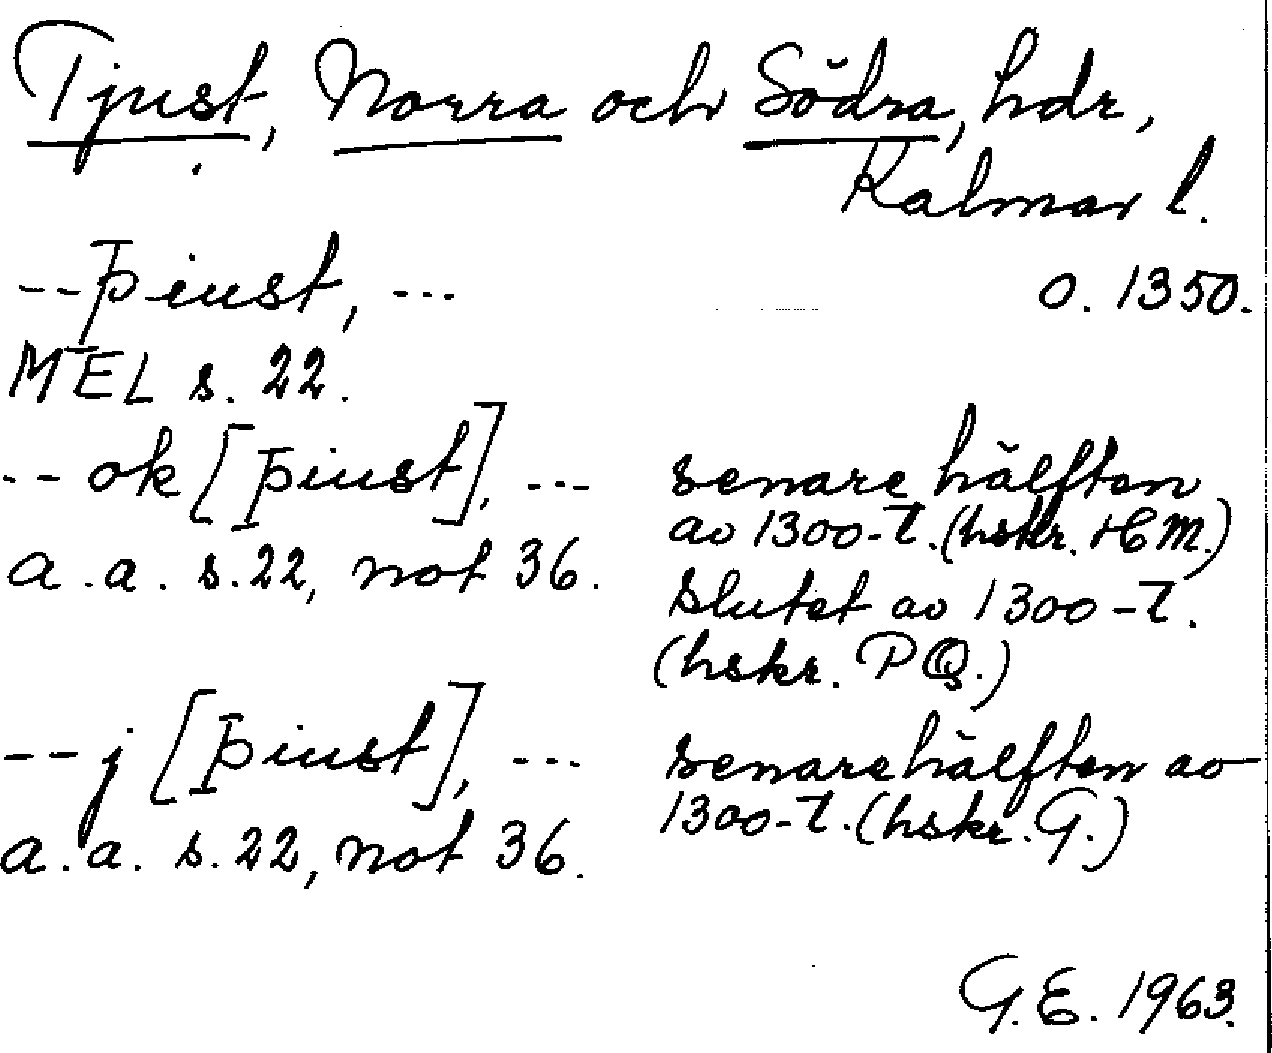 Tjust, Norra och Södra, hdr,
Kalmar l.
--þiust, --- o. 1350.
MEL s. 22.
-- ok [þiust], --- senare hälften
av 1300-t. (hskr. HM.)
a.a. s. 22, not 36.
slutet av 1300-t.
(hskr. PQ.)
--j [þiust], --- senare hälften av
1300-t. (hskr. G.)
a.a. s. 22, not 36.
G.E. 1963.